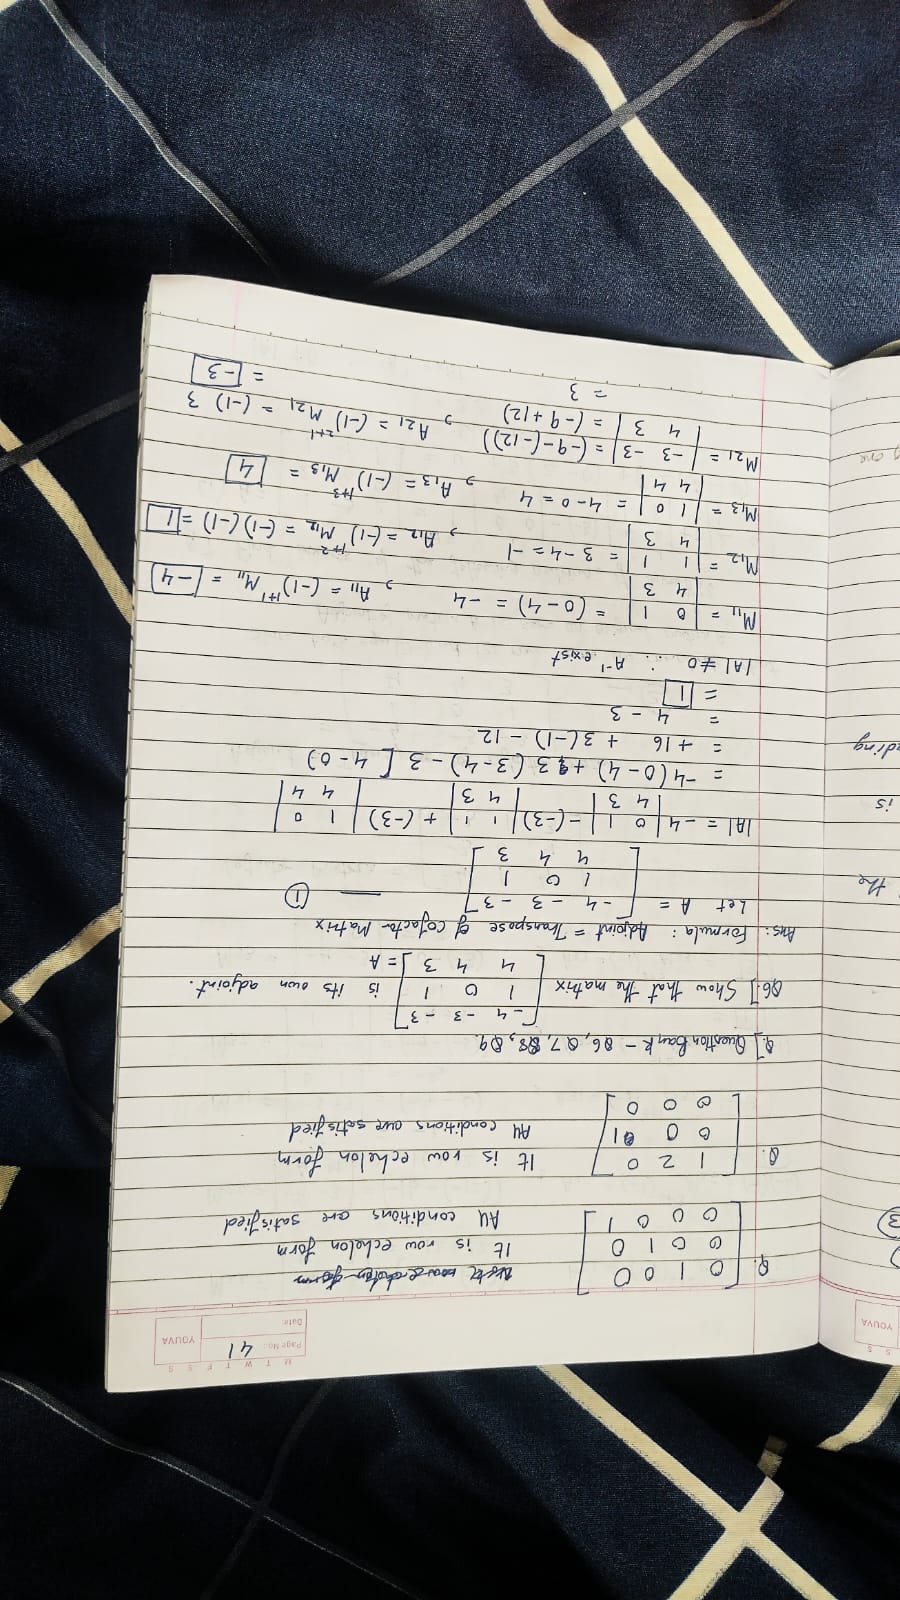 S S
YOUVA
M T W T F S S
Page No.: 41
YOUVA
Date:
3
the
is
ding
one
Q. [0 1 0 0
0 0 1 0
0 0 0 1]
It is row echelon form
All conditions are satisfied
Q. [1 2 0
0 0 1
0 0 0]
It is row echelon form
All conditions are satisfied
Q.] Question Bank - Q6, Q7, Q8, Q9.
Q6.] Show that the matrix [-4 -3 -3
1 0 1
4 4 3] = A is its own adjoint.
Ans: Formula: Adjoint = Transpose of cofactor Matrix
Let A = [-4 -3 -3
1 0 1
4 4 3] — ①
|A| = -4 |0 1
4 3| -(-3) |1 1
4 3| + (-3) |1 0
4 4|
= -4(0-4) + 3(3-4) - 3[4-0)
= +16 + 3(-1) - 12
= 4 - 3
= 1
|A| ≠ 0 ∴ A⁻¹ exist
M₁₁ = |0 1
4 3| = (0-4) = -4 , A₁₁ = (-1)¹⁺¹ M₁₁ = -4
M₁₂ = |1 1
4 3| = 3-4 = -1 , A₁₂ = (-1)¹⁺² M₁₂ = (-1)(-1) = 1
M₁₃ = |1 0
4 4| = 4-0 = 4 , A₁₃ = (-1)¹⁺³ M₁₃ = 4
M₂₁ = |-3 -3
4 3| = (-9-(-12)) , A₂₁ = (-1)²⁺¹ M₂₁ = (-1) 3
= (-9+12)
= 3
= -3